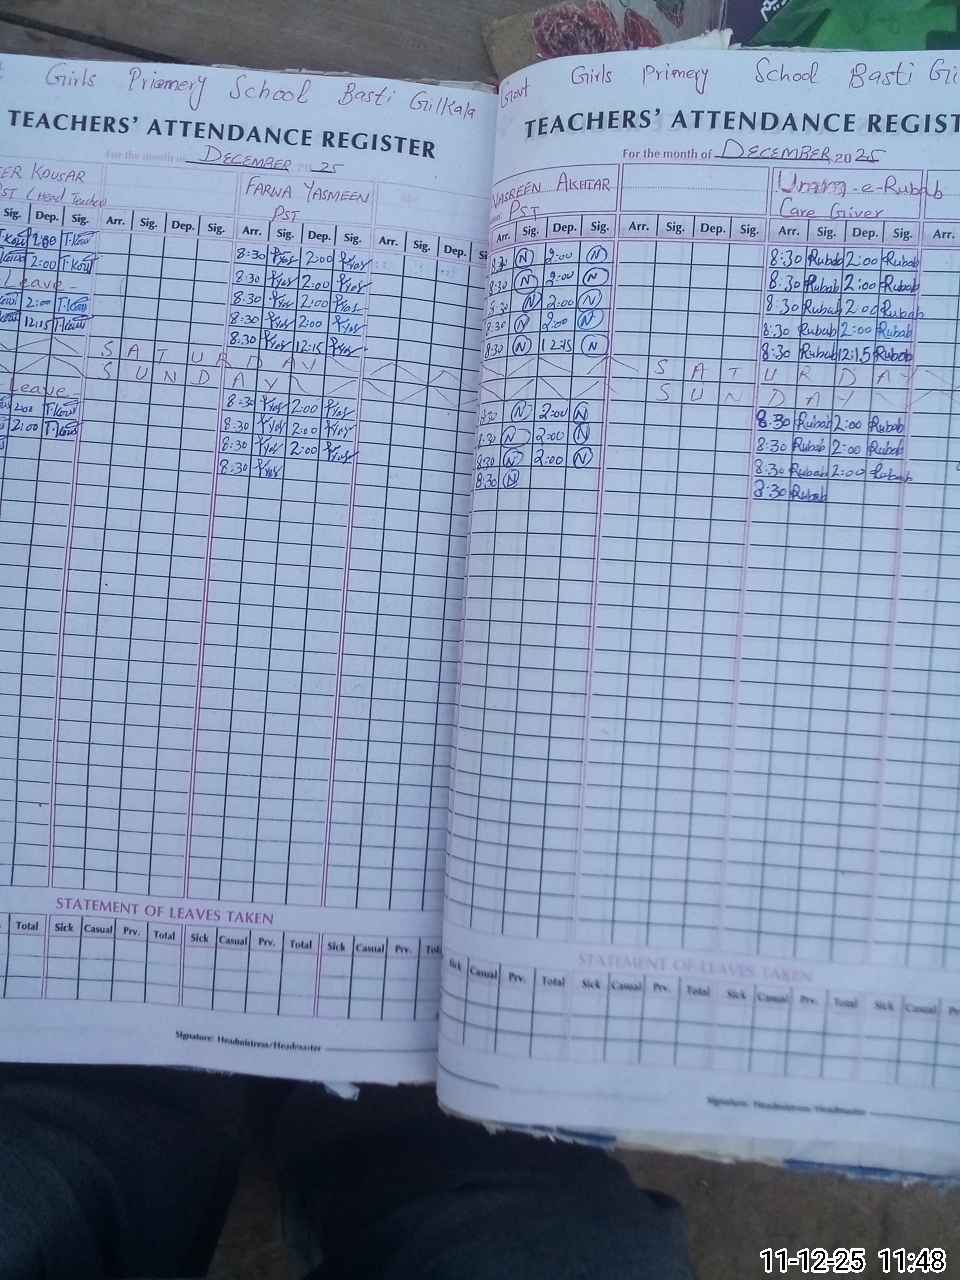 Girls Priemery School Basti Gulkala
TEACHERS' ATTENDANCE REGISTER
For the month of DECEMBER 2025
ER KOUSAR
PST (Head Teacher
FARWA YASMEEN
PST
Sig. Dep. Sig. Arr. Sig. Dep. Sig. Arr. Sig. Dep. Sig. Arr. Sig. Dep.
2:00 T.Kou 8:30 2:00
2:00 T.Kou 8:30 2:00
Leave - 8:30 2:00
2:00 T.Kou 8:30 2:00
12:15 T.Kou 8:30 12:15
SATURDAY
SUNDAY
Leave 8:30 2:00
2:00 T.Kou 8:30 2:00
2:00 T.Kou 8:30 2:00
8:30
STATEMENT OF LEAVES TAKEN
Total Sick Casual Prv. Total Sick Casual Prv. Total Sick Casual Prv. Tot
Signature: Headmistress/Headmaster
Govt Girls Primery School Basti Gu
TEACHERS' ATTENDANCE REGIST
For the month of DECEMBER 2025
NASREEN AKHTAR
PST
Umang-e-Rubab
Care Giver
Arr. Sig. Dep. Sig. Arr. Sig. Dep. Sig. Arr. Sig. Dep. Sig. Arr.
8:30 N 2:00 N 8:30 Rubab 2:00 Rubab
8:30 N 2:00 N 8:30 Rubab 2:00 Rubab
8:30 N 2:00 N 8:30 Rubab 2:00 Rubab
8:30 N 2:00 N 8:30 Rubab 2:00 Rubab
8:30 N 12:15 N 8:30 Rubab 12:15 Rubab
SATURDAY
SUNDAY
8:30 N 2:00 N 8:30 Rubab 2:00 Rubab
8:30 N 2:00 N 8:30 Rubab 2:00 Rubab
8:30 N 2:00 N 8:30 Rubab 2:00 Rubab
8:30 N 8:30 Rubab
STATEMENT OF LEAVES TAKEN
Sick Casual Prv. Total Sick Casual Prv. Total Sick Casual Prv. Total Sick Casual Pr
Signature: Headmistress/Headmaster
11-12-25 11:48